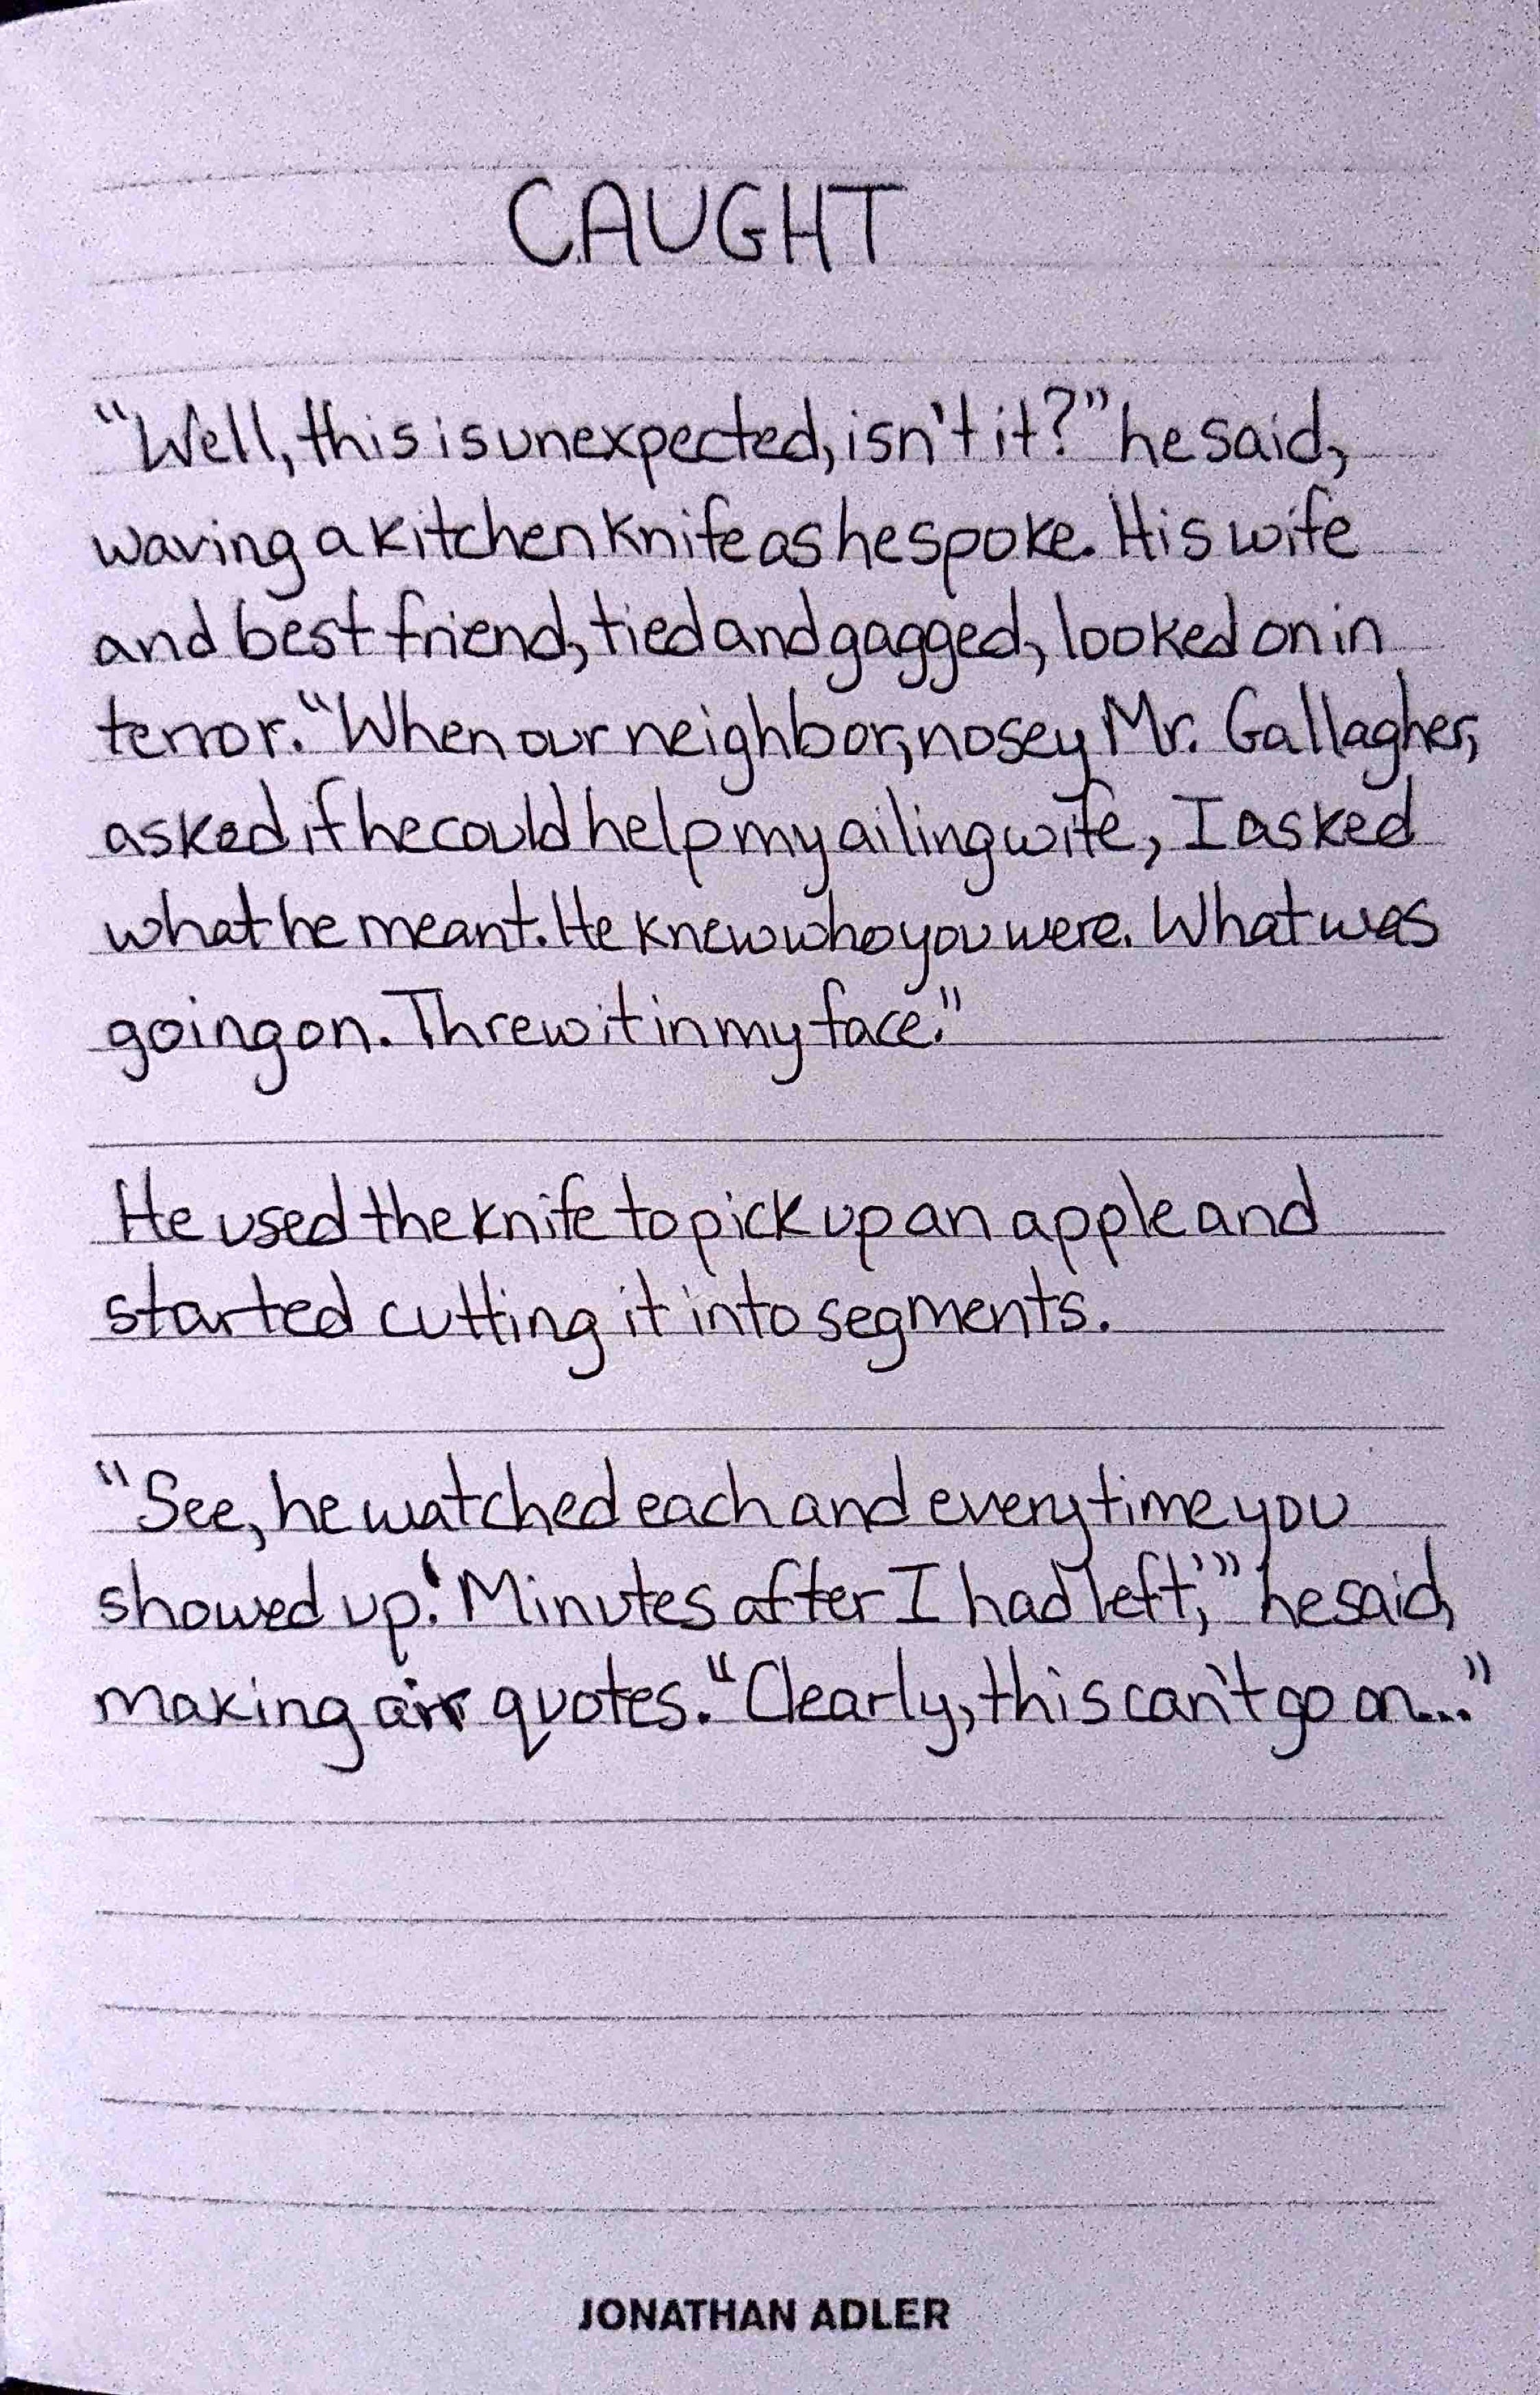 CAUGHT
“Well, this is unexpected, isn't it?” he said,
waving a kitchen knife as he spoke. His wife
and best friend, tied and gagged, looked on in
terror. “When our neighbor, nosey Mr. Gallagher,
asked if he could help my ailing wife, I asked
what he meant. He knew who you were. What was
going on. Threw it in my face.”
He used the knife to pick up an apple and
started cutting it into segments.
“See, he watched each and every time you
showed up. ‘Minutes after I had left,’” he said,
making air quotes. “Clearly, this can't go on...”
JONATHAN ADLER